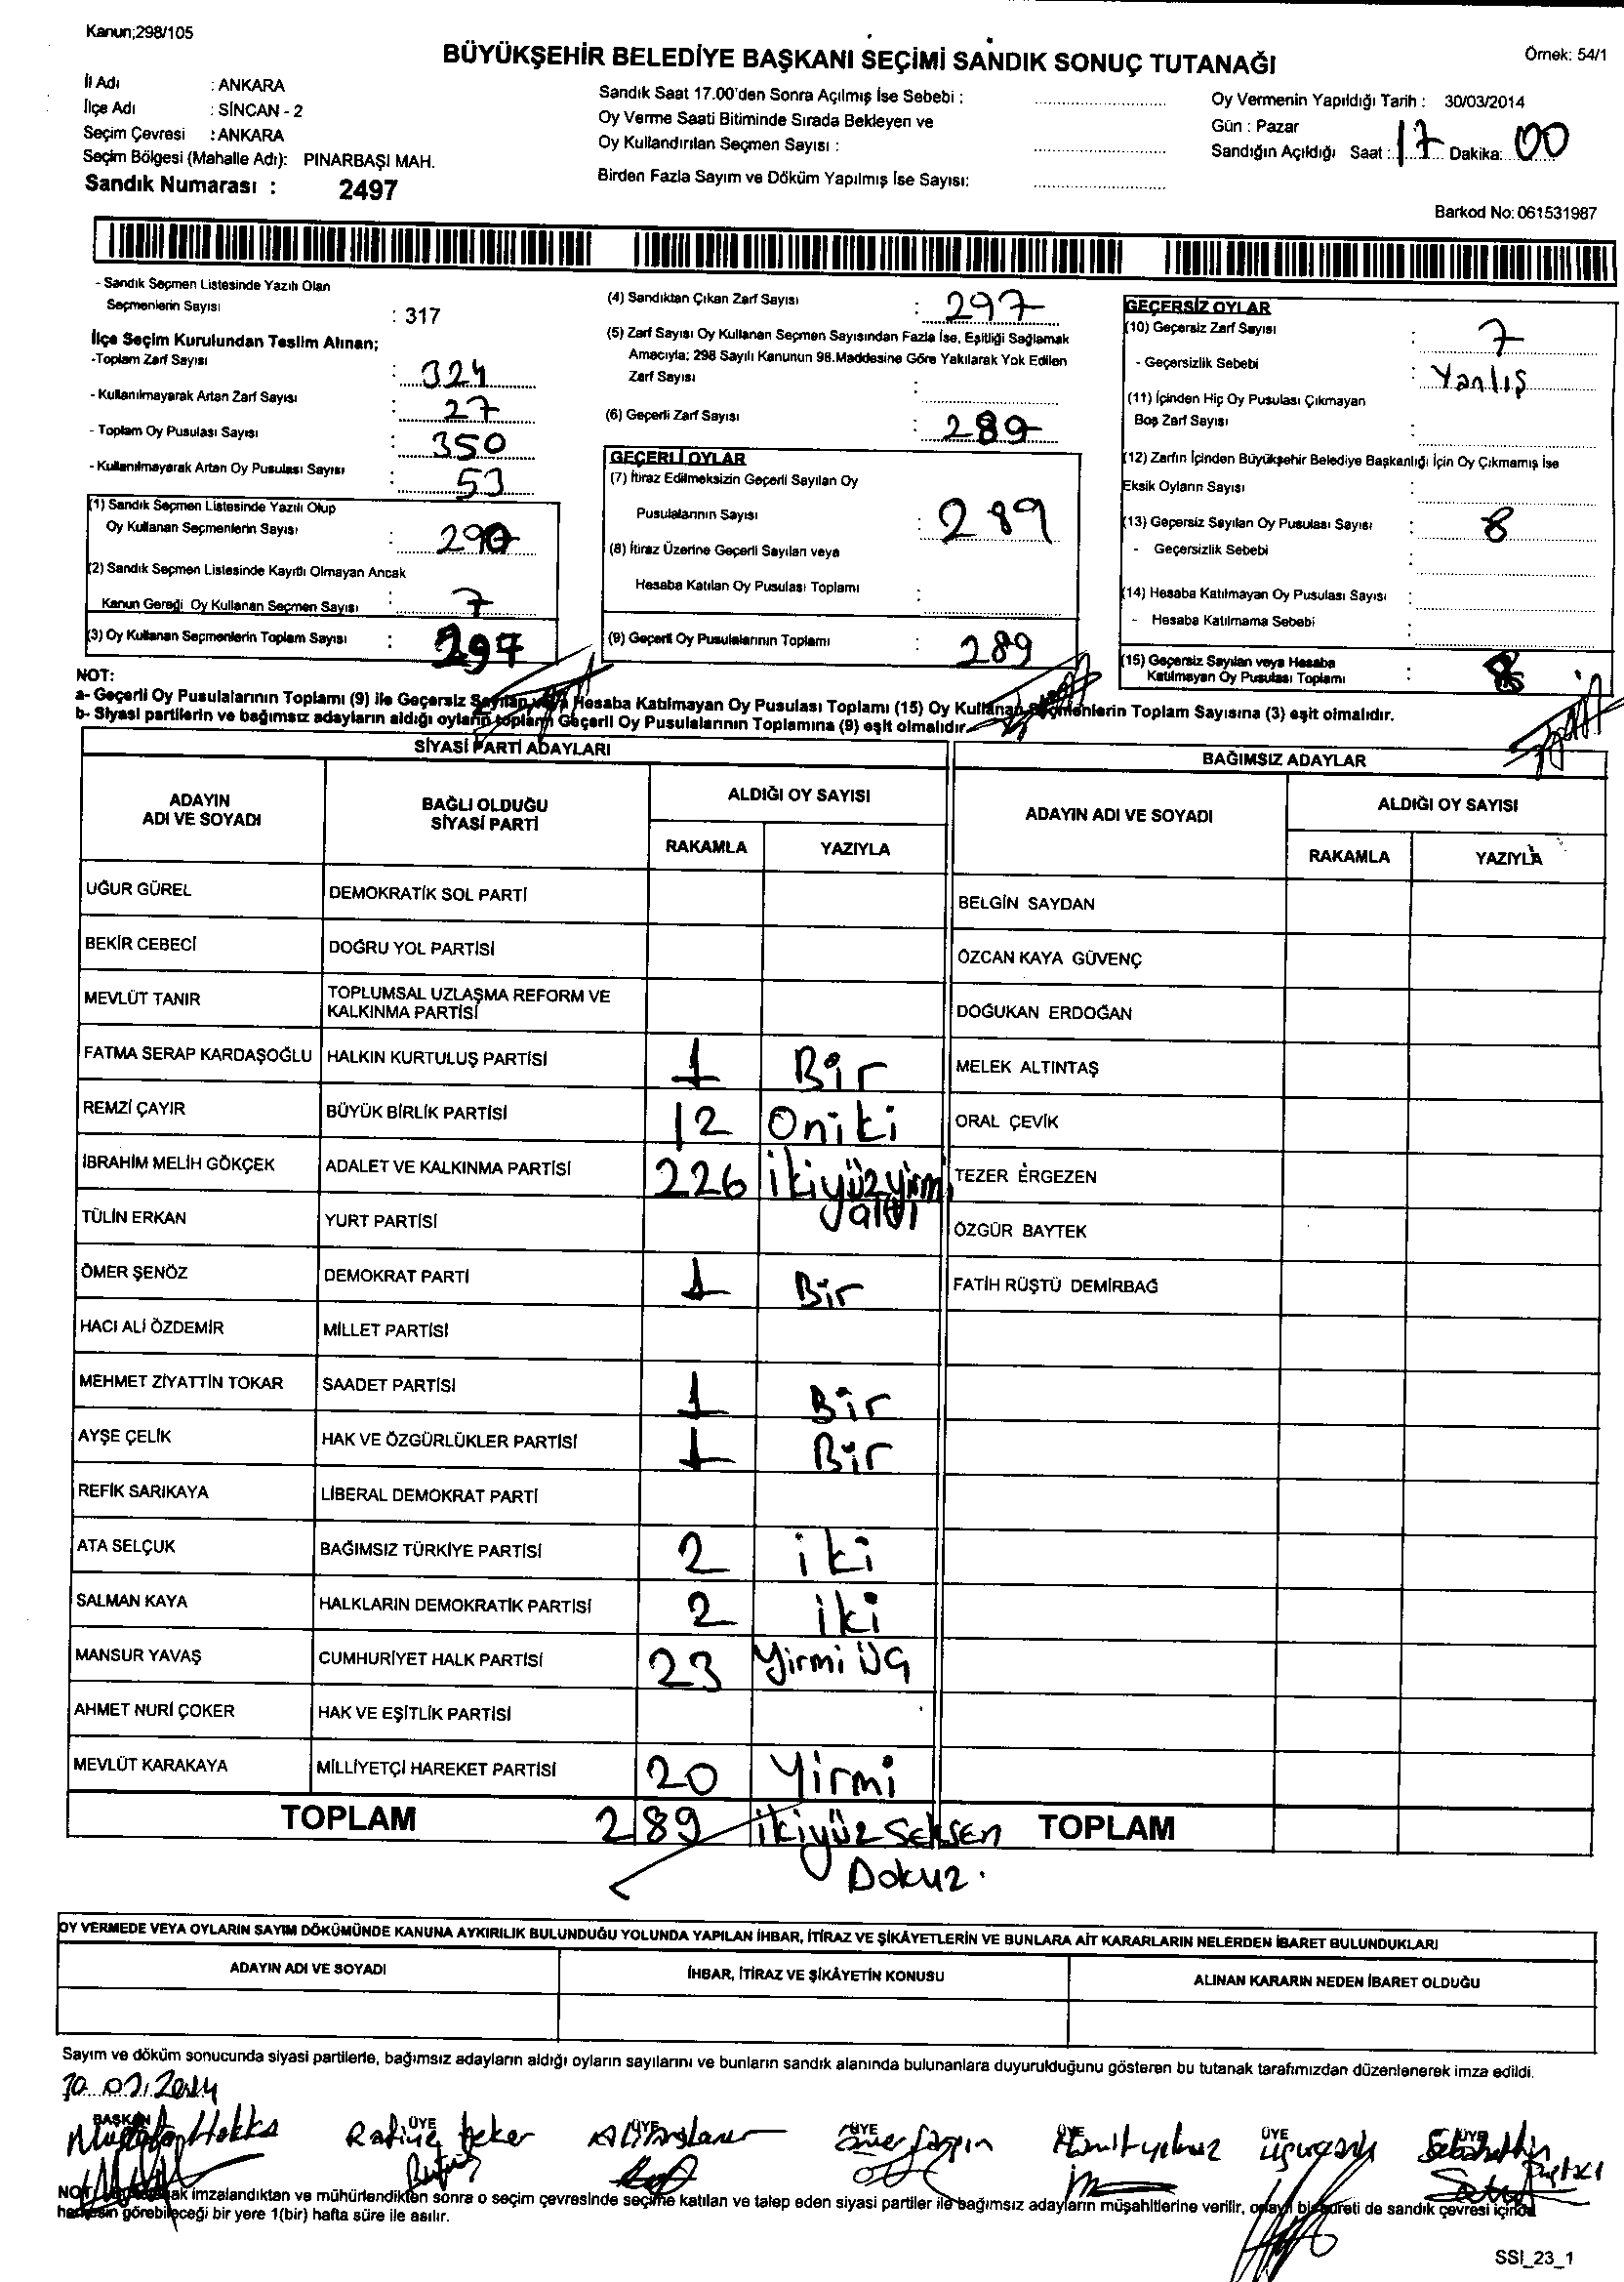 Kanun;298/105
BÜYÜKŞEHİR BELEDİYE BAŞKANI SEÇİMİ SANDIK SONUÇ TUTANAĞI
Örnek: 54/1
İl Adı : ANKARA
İlçe Adı : SİNCAN - 2
Seçim Çevresi : ANKARA
Seçim Bölgesi (Mahalle Adı): PINARBAŞI MAH.
Sandık Numarası : 2497
Sandık Saat 17.00'den Sonra Açılmış İse Sebebi :
Oy Verme Saati Bitiminde Sırada Bekleyen ve
Oy Kullandırılan Seçmen Sayısı :
Birden Fazla Sayım ve Döküm Yapılmış İse Sayısı:
Oy Vermenin Yapıldığı Tarih : 30/03/2014
Gün : Pazar
Sandığın Açıldığı Saat : 17 Dakika: 00
Barkod No: 061531987
- Sandık Seçmen Listesinde Yazılı Olan
Seçmenlerin Sayısı : 317
İlçe Seçim Kurulundan Teslim Alınan;
-Toplam Zarf Sayısı : 324
- Kullanılmayarak Artan Zarf Sayısı : 27
- Toplam Oy Pusulası Sayısı : 350
- Kullanılmayarak Artan Oy Pusulası Sayısı : 53
(1) Sandık Seçmen Listesinde Yazılı Olup
Oy Kullanan Seçmenlerin Sayısı : 290
(2) Sandık Seçmen Listesinde Kayıtlı Olmayan Ancak
Kanun Gereği Oy Kullanan Seçmen Sayısı : 7
(3) Oy Kullanan Seçmenlerin Toplam Sayısı : 297
(4) Sandıktan Çıkan Zarf Sayısı : 297
(5) Zarf Sayısı Oy Kullanan Seçmen Sayısından Fazla İse, Eşitliği Sağlamak
Amacıyla; 298 Sayılı Kanunun 98.Maddesine Göre Yakılarak Yok Edilen
Zarf Sayısı :
(6) Geçerli Zarf Sayısı : 289
GEÇERLİ OYLAR
(7) İtiraz Edilmeksizin Geçerli Sayılan Oy
Pusulalarının Sayısı : 289
(8) İtiraz Üzerine Geçerli Sayılan veya
Hesaba Katılan Oy Pusulası Toplamı :
(9) Geçerli Oy Pusulalarının Toplamı : 289
GEÇERSİZ OYLAR
(10) Geçersiz Zarf Sayısı : 7
- Geçersizlik Sebebi : Yanlış
(11) İçinden Hiç Oy Pusulası Çıkmayan
Boş Zarf Sayısı :
(12) Zarfın İçinden Büyükşehir Belediye Başkanlığı İçin Oy Çıkmamış İse
Eksik Oyların Sayısı :
(13) Geçersiz Sayılan Oy Pusulası Sayısı : 8
- Geçersizlik Sebebi :
(14) Hesaba Katılmayan Oy Pusulası Sayısı :
- Hesaba Katılmama Sebebi :
(15) Geçersiz Sayılan veya Hesaba
Katılmayan Oy Pusulası Toplamı : 8
NOT:
a- Geçerli Oy Pusulalarının Toplamı (9) ile Geçersiz Sayılan veya Hesaba Katılmayan Oy Pusulası Toplamı (15) Oy Kullanan Seçmenlerin Toplam Sayısına (3) eşit olmalıdır.
b- Siyasi partilerin ve bağımsız adayların aldığı oyların toplamı Geçerli Oy Pusulalarının Toplamına (9) eşit olmalıdır.
SİYASİ PARTİ ADAYLARI
BAĞIMSIZ ADAYLAR
ADAYIN ADI VE SOYADI
BAĞLI OLDUĞU SİYASİ PARTİ
ALDIĞI OY SAYISI
RAKAMLA YAZIYLA
ADAYIN ADI VE SOYADI
ALDIĞI OY SAYISI
RAKAMLA YAZIYLA
UĞUR GÜREL DEMOKRATİK SOL PARTİ BELGİN SAYDAN
BEKİR CEBECİ DOĞRU YOL PARTİSİ ÖZCAN KAYA GÜVENÇ
MEVLÜT TANIR TOPLUMSAL UZLAŞMA REFORM VE KALKINMA PARTİSİ DOĞUKAN ERDOĞAN
FATMA SERAP KARDAŞOĞLU HALKIN KURTULUŞ PARTİSİ 1 Bir MELEK ALTINTAŞ
REMZİ ÇAYIR BÜYÜK BİRLİK PARTİSİ 12 Oniki ORAL ÇEVİK
İBRAHİM MELİH GÖKÇEK ADALET VE KALKINMA PARTİSİ 226 ikiyüzyirmi altı TEZER ERGEZEN
TÜLİN ERKAN YURT PARTİSİ ÖZGÜR BAYTEK
ÖMER ŞENÖZ DEMOKRAT PARTİ 1 Bir FATİH RÜŞTÜ DEMİRBAĞ
HACI ALİ ÖZDEMİR MİLLET PARTİSİ
MEHMET ZİYATTİN TOKAR SAADET PARTİSİ 1 Bir
AYŞE ÇELİK HAK VE ÖZGÜRLÜKLER PARTİSİ 1 Bir
REFİK SARIKAYA LİBERAL DEMOKRAT PARTİ
ATA SELÇUK BAĞIMSIZ TÜRKİYE PARTİSİ 2 iki
SALMAN KAYA HALKLARIN DEMOKRATİK PARTİSİ 2 iki
MANSUR YAVAŞ CUMHURİYET HALK PARTİSİ 23 Yirmi üç
AHMET NURİ ÇOKER HAK VE EŞİTLİK PARTİSİ
MEVLÜT KARAKAYA MİLLİYETÇİ HAREKET PARTİSİ 20 Yirmi
TOPLAM 289 ikiyüz seksen Dokuz. TOPLAM
OY VERMEDE VEYA OYLARIN SAYIM DÖKÜMÜNDE KANUNA AYKIRILIK BULUNDUĞU YOLUNDA YAPILAN İHBAR, İTİRAZ VE ŞİKÂYETLERİN VE BUNLARA AİT KARARLARIN NELERDEN İBARET BULUNDUKLARI
ADAYIN ADI VE SOYADI İHBAR, İTİRAZ VE ŞİKÂYETİN KONUSU ALINAN KARARIN NEDEN İBARET OLDUĞU
Sayım ve döküm sonucunda siyasi partilerle, bağımsız adayların aldığı oyların sayılarını ve bunların sandık alanında bulunanlara duyurulduğunu gösteren bu tutanak tarafımızdan düzenlenerek imza edildi.
30.03.2014
BAŞKAN ÜYE ÜYE ÜYE ÜYE ÜYE ÜYE
NOT: imzalandıktan ve mühürlendikten sonra o seçim çevresinde seçime katılan ve talep eden siyasi partiler ile bağımsız adayların müşahitlerine verilir, onaylı bir sureti de sandık çevresi içinde
herkesin görebileceği bir yere 1(bir) hafta süre ile asılır.
SSI_23_1